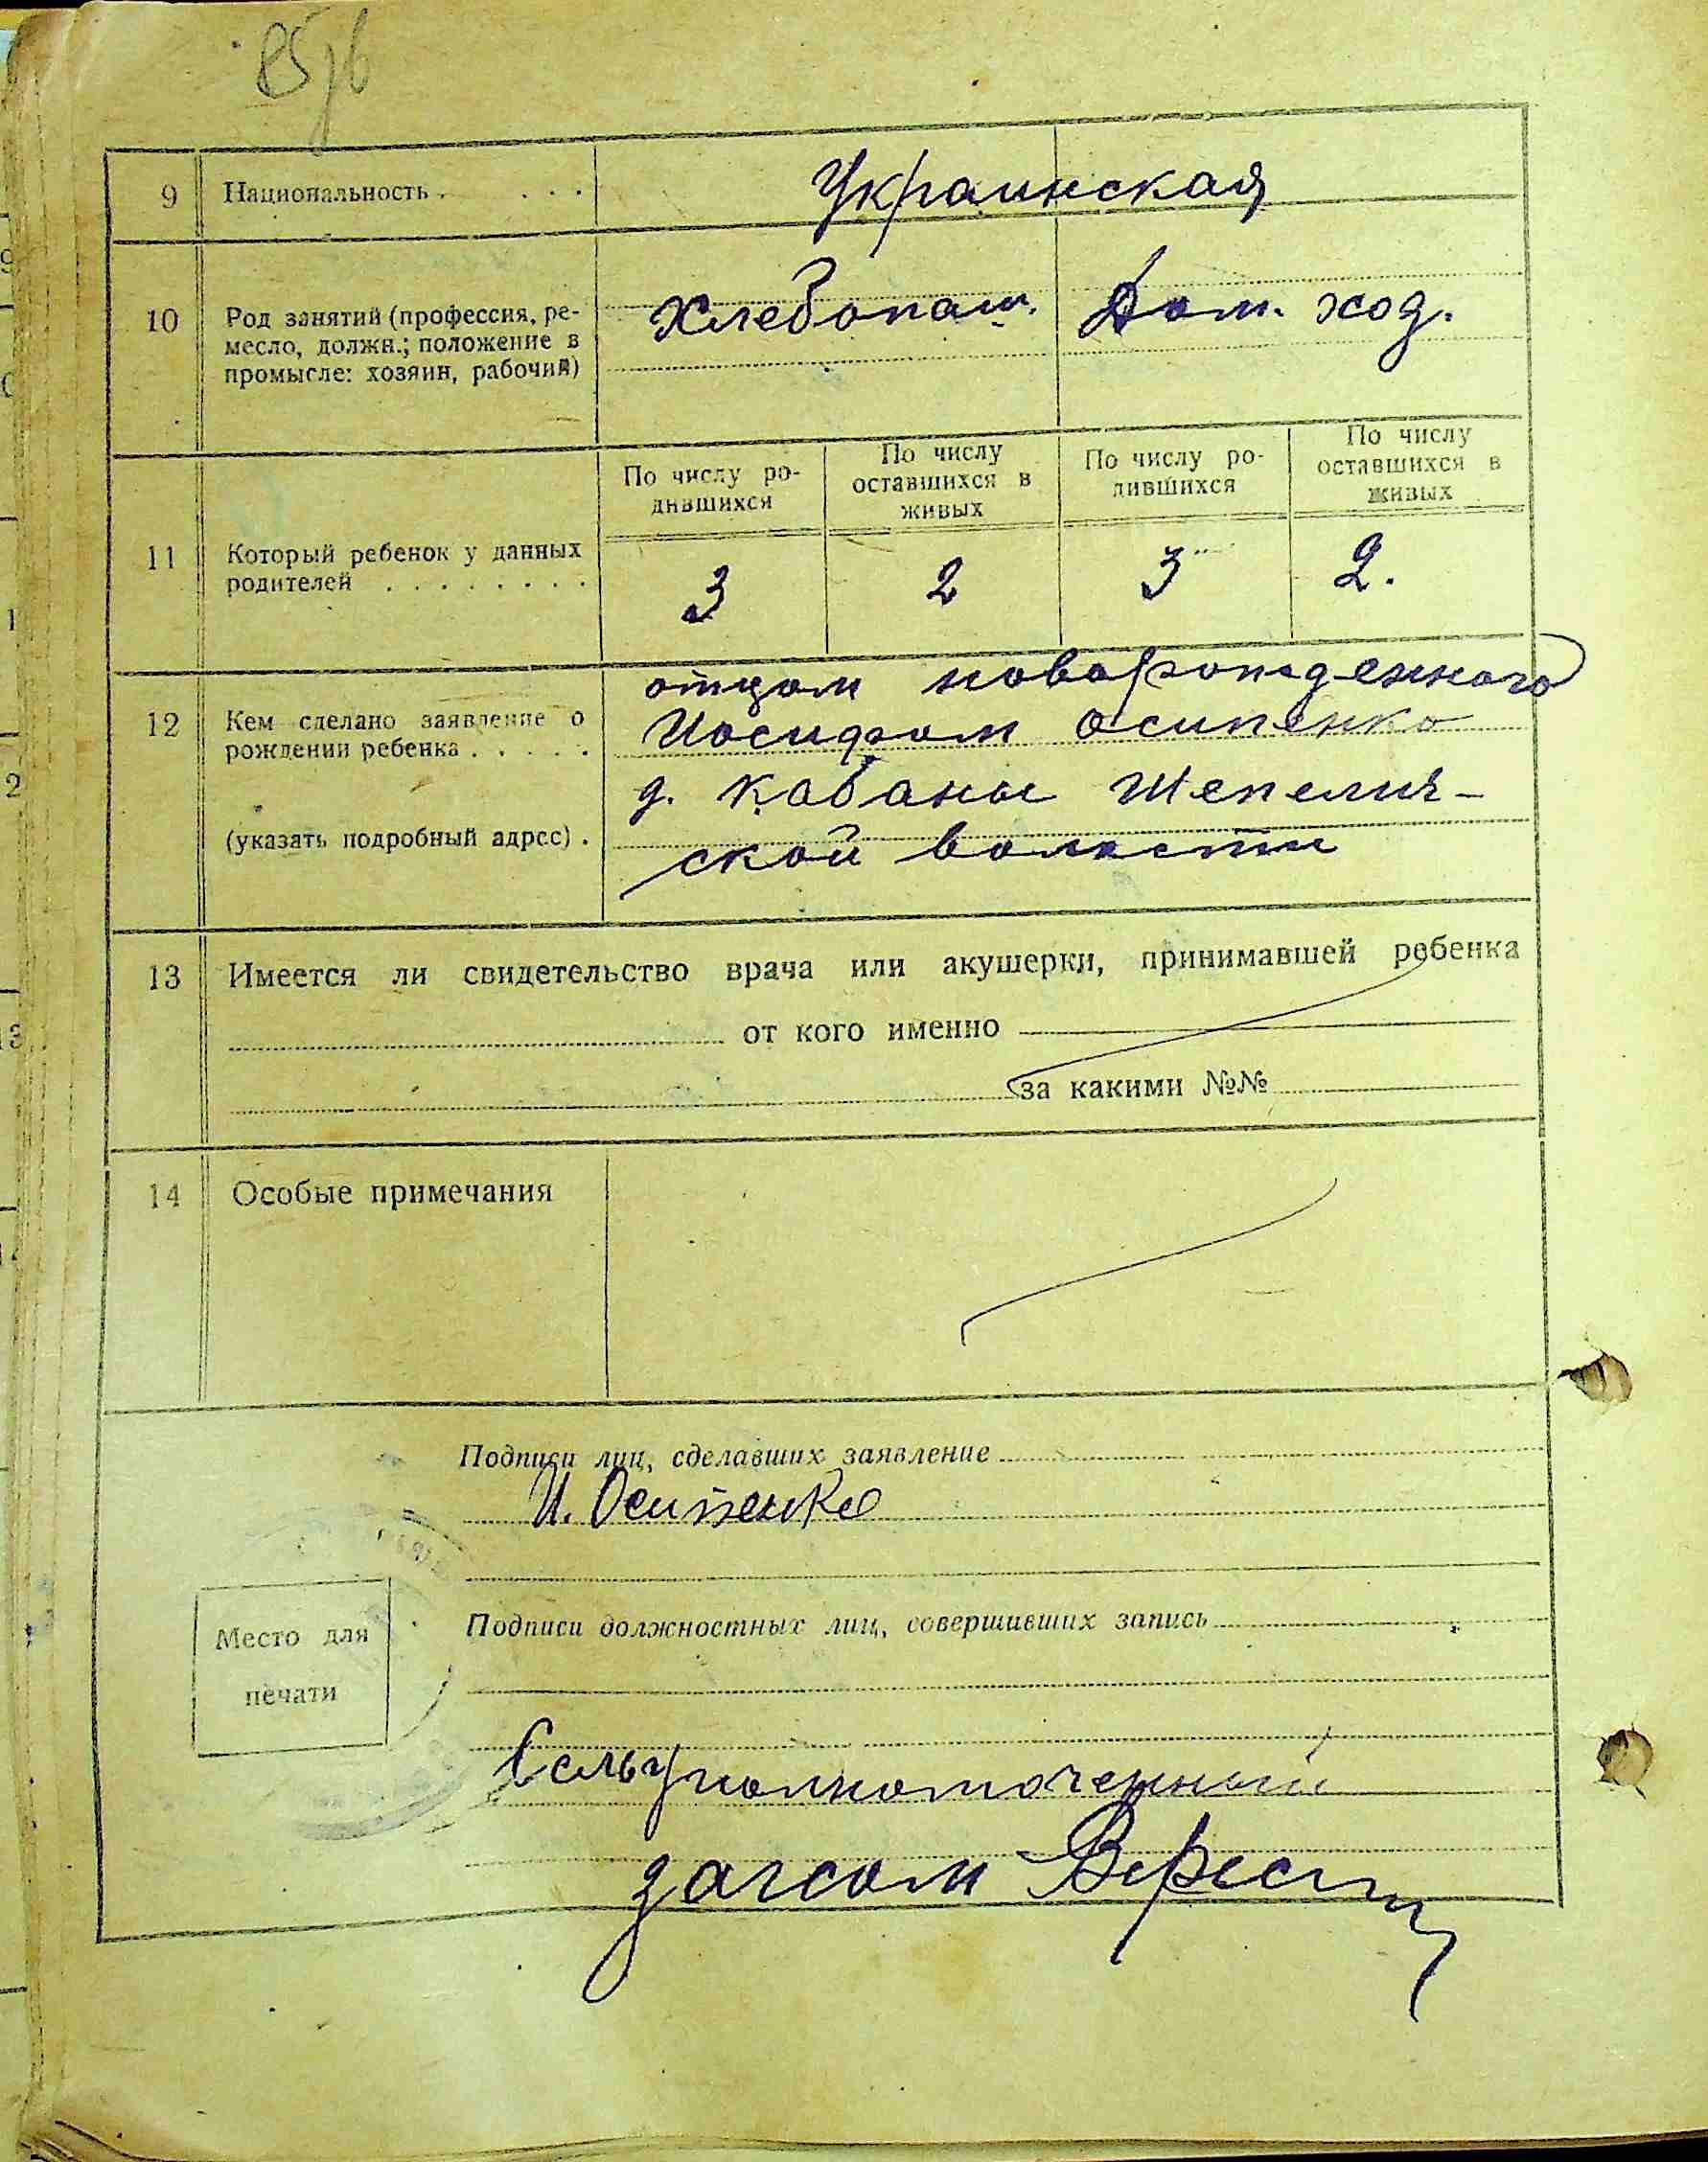 9 Национальность . . . . Украинская
10 Род занятий (профессия, ре-
месло, должн.; положение в
промысле: хозяин, рабочий)
Хлебопаш. Дом. хоз.
По числу ро-
дившихся
По числу
оставшихся в
живых
По числу ро-
дившихся
По числу
оставшихся в
живых
11 Который ребенок у данных
родителей . . . . . . . .
3 2 3 2.
12 Кем сделано заявление о
рождении ребенка . . . . .
(указать подробный адрес) .
отцом новорожденного
Иосифом Осипенко
д. Кабаны Шепелич-
ской волости
13 Имеется ли свидетельство врача или акушерки, принимавшей ребенка
от кого именно
за какими №№
14 Особые примечания
Подписи лиц, сделавших заявление
И. Осипенко
Место для
печати
Подписи должностных лиц, совершивших запись
Сельуполномоченный
загсом Верес